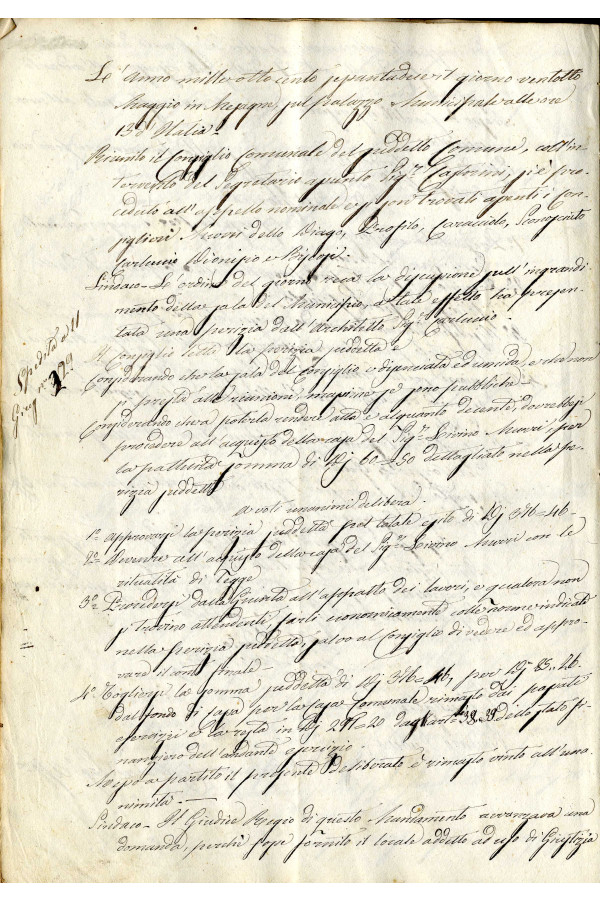 L'anno mille otto cento sessantadue il giorno ventotto
Maggio in Mesagne, sul palazzo Municipale alle ore
13 d'Italia.
Riunito il Consiglio Comunale del suddetto Comune, coll'in-
tervento del Segretario assunto Sig.r Castorini, si è pro-
ceduto all'appello nominale e si son trovati assenti i Con-
siglieri Murri dello Diago, Profilo, Caracciolo,
Carluccio Dionisio e
Sindaco - Le ordine del giorno reca la discussione sull'ingrandi-
mento della sala del Municipio, a tale effetto ha presen-
tata una perizia dall'Architetto Sig.r Carluccio.
Il Consiglio letta la perizia suddetta e
Considerando che la sala del Consiglio, è disunciata ed umida, e che non
si presta alle riunioni, massime se sono pubbliche -
Considerando che a poterla rendere atta e alquanto decente, dovrebbesi
procedere all'acquisto della casa del Sig.r Livino Murri, per
la somma di Dj 60=50 dettagliata nella pe-
rizia suddetta
a voti unanimi delibera.
1.o approvarsi la perizia suddetta pel totale esito di Dj 316=46-
2.o Devenire all'acquisto della casa del Sig.r Livino Murri con le
ritualità di Legge
3.o Procedersi dalla Giunta all'appalto dei lavori, e qualora non
si trovino attendenti, farli economicamente colle norme indicate
nella perizia suddetta, salvo al Consiglio di vedere ed appro-
vare il conto finale -
4.o Togliersi la somma suddetta di Dj 316=46, per Dj
dal fondo di cassa per la casa Comunale rimasto dai passati
esercizi e la resta in Dj dagli art. 38. 39 dello stato fi-
nanziero dell'andante esercizio.
Messo a partito il presente deliberato è rimasto vinto all'una-
nimità -
Sindaco - Il Giudice Regio di questo Mandamento avanzava una
domanda, perchè fosse fornito il locale addetto ad uso di Giustizia
Spedito a 11
Giugno